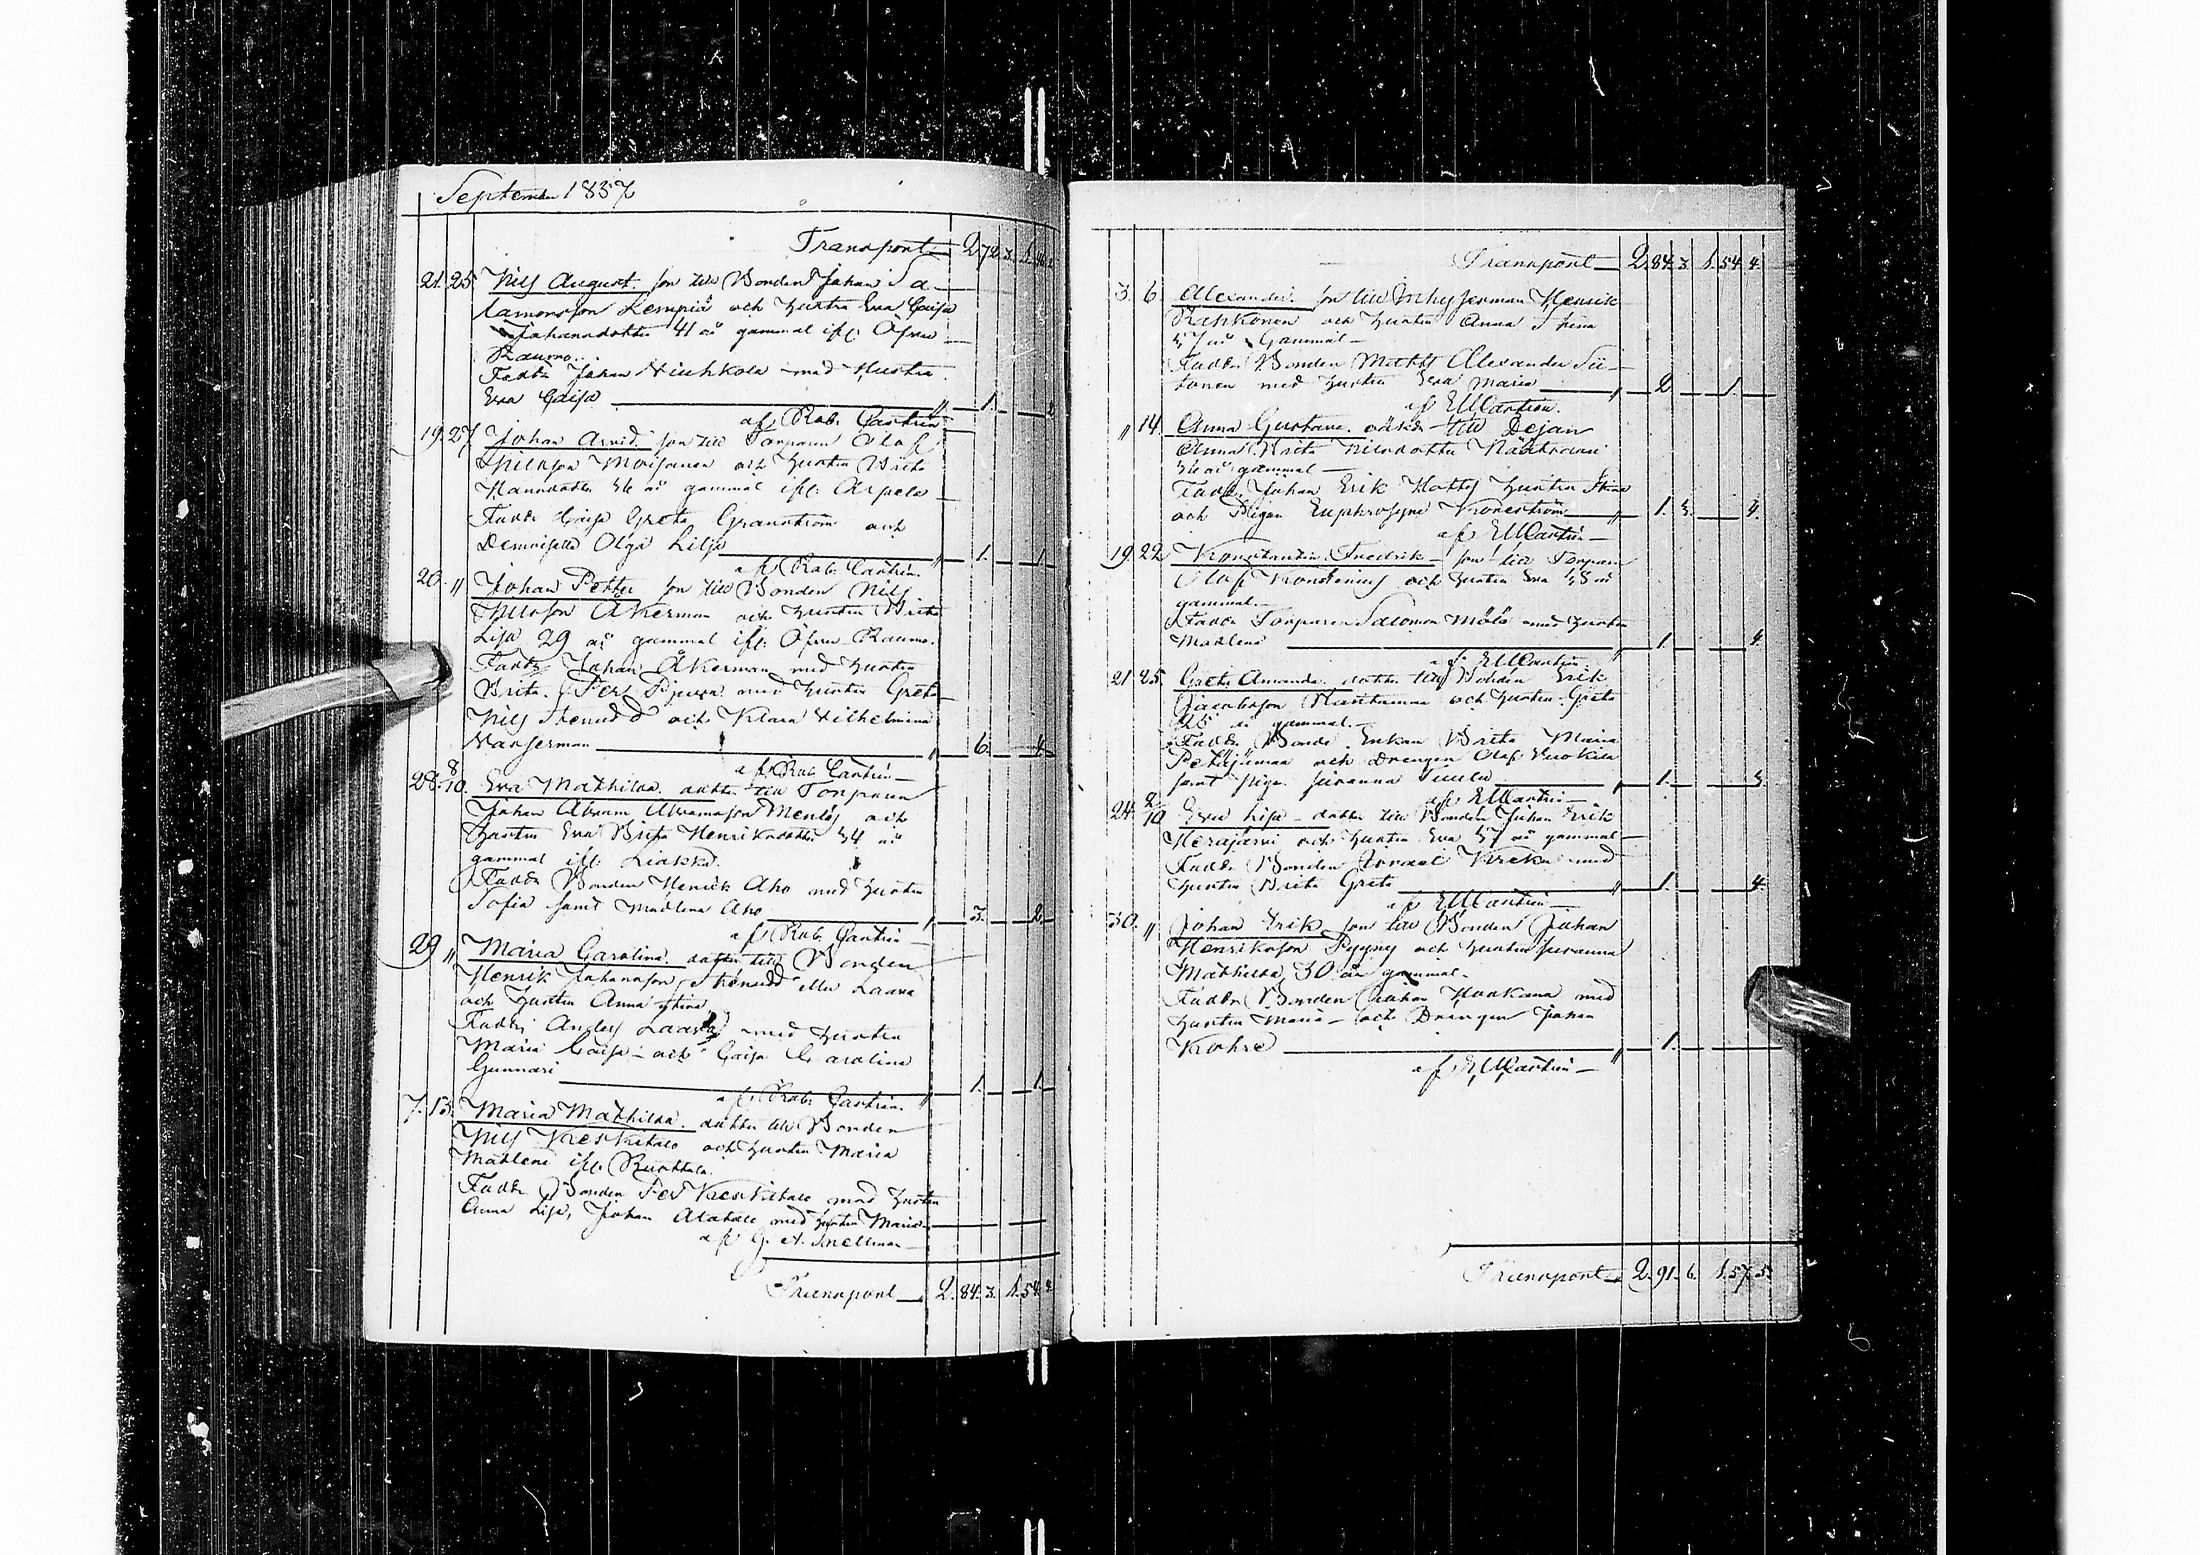 September 1837
Transport 2.72.3.
21. 25. Nils August. son till Bonden Johan Sa-
lamonsson Lempiä och hustru Eva Caisa
Johansdotter 41 år gammal ifl. Öfver
Raumo.
Faddr Johan Niuhkola med Hustru
Eva Caisa 1.
af Rab. Castrén
19. 27. Johan Arvid. son till Torparen Olof
Nilsson Moisanen och hustru Brita
Hansdotter 36 år gammal ifl. Arpela
Faddr Caisa Greta Granström och
Demoiselle Olga Lilje 1. 1.
af Rab. Castrén.
20. " Johan Petter son till Bonden Nils
Nilsson Åkerman och hustru Brita
Lisa 29 år gammal ifl. Öfver Raumo.
Faddr Johan Åkerman med hustru
Brita. Per med hustru Greta
Nils Stenudd och Klara Vilhelmina
6.
af Rab. Castrén
28. 8/10. Eva Mathilda. dotter till Torparen
Johan Abram Abramsson och
hustru Eva Brita Henriksdotter 34 år
gammal ifl. Liakka.
Faddr Bonden Henrik Aho med hustru
Sofia samt Madlena Aho 3. 2.
af Rab. Castrén
29 " Maria Carolina. dotter till Bonden
Henrik Johansson Stenudd eller Laara
och hustru Anna Stina
Faddr Anders Laara med hustru
Maria Caisa och Caisa Carolina
Gunnari 1. 1.
af Rab. Castrén.
7. 13. Maria Mathilda. dotter till Bonden
Nils Keskitalo och hustru Maria
Madlena ifl. Ruottala.
Faddr Bonden Per Keskitalo med hustru
Anna Lisa, Johan Alatalo med hustru Maria
af G. A. Snellman
Transport 2.84.3. 1.54.4.
Transport 2.84.3. 1.54.4.
3. 6. Alexander. son till Henrik
Rahkonen och hustru Anna Stina
37 år Gammal
Faddr Bonden Matts Alexander Sii-
tonen med hustru Eva Maria 2. 1.
af EMCastrén.
" 14. Anna Gustava. till Pejan
Anna Brita Nilsdotter
36 år gammal
Faddr Johan Erik hustru Stina
och Pigan Euphrosyne Kroneström 1. 3. 4.
af EMCastrén
19. 22. Konstantin Fredrik son till Torparen
Olof och hustru Eva 48 år
gammal.
Faddr Torparen Salomon Mölö med hustru
Madlena 1. 4.
af EMCastrén
21 25. Greta Amanda dotter till Bonden Erik
Jacobsson och hustru Greta
25 år gammal.
Faddr Bonde Enkan Brita Maria
Petäjämaa och Drengen Olof Vuokila
samt Pigan Susanna Tuulu 1. 3.
af EMCastrén
24. 2/10 Eva Lisa dotter till Bonden Johan Erik
Herajärvi och hustru Eva 37 år gammal
Faddr Bonden Israel Kreku med
hustru Brita Greta 1. 4.
af EMCastrén
30. " Johan Erik son till Bonden Johan
Henriksson Pyyny och hustru Susanna
Mathilda 30 år gammal.
Faddr Bonden Johan Huokana med
hustru Maria och Drengen Johan
1.
af EMCastrén
Transport 2.91.6. 1.57.5.